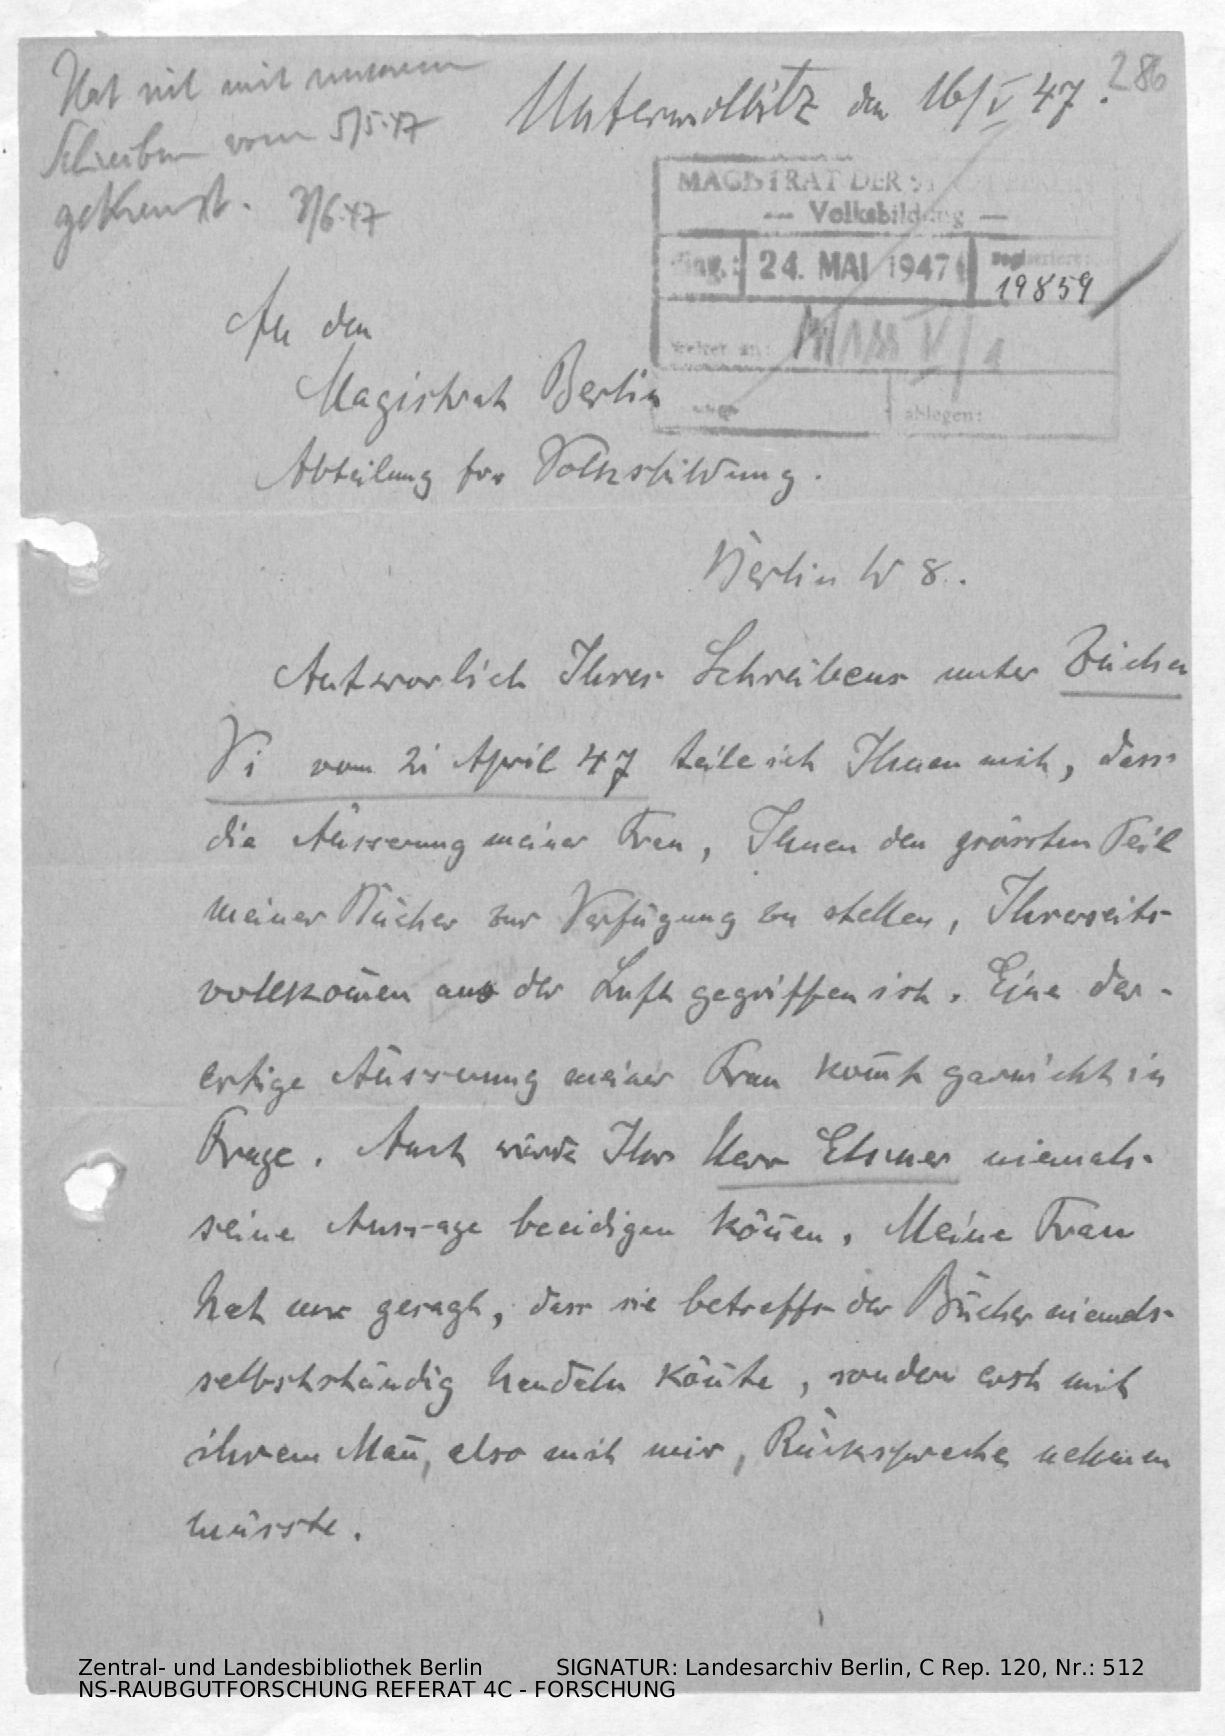 286
Hat mit unserem
Schreiben vom 5/5.47
gekreuzt. 3/6.47
Unterwellitz den 16/V 47.
MAGISTRAT DER
— Volksbildung —
Eing.: 24. MAI 1947 Registriert:
19859
weiter an: V/1
ablegen:
An den
Magistrat Berlin
Abteilung for Volksbildung.
Berlin W 8.
Antworlich Ihres Schreibens unter Bücher
Vi vom 2i April 47 teile ich Ihnen mit, dass
die Äusserung meiner Frau, Ihnen den grössten Teil
meiner Bücher zur Verfügung zu stellen, Ihrerseits
vollkom̅en aus der Luft gegriffen ist. Eine der-
ertige Äusserung meiner Frau kom̅t garnicht in
Frage. Auch würde Ihr Herr Elsner niemals
seine Aussage beeidigen kön̅en. Meine Frau
hat nur gesagt, dass sie betreffs der Bücher niemals
selbstständig handeln kön̅te, sondern erst mit
ihrem Man̅, also mit mir, Rücksprache nehmen
müsste.
Zentral- und Landesbibliothek Berlin SIGNATUR: Landesarchiv Berlin, C Rep. 120, Nr.: 512
NS-RAUBGUTFORSCHUNG REFERAT 4C - FORSCHUNG